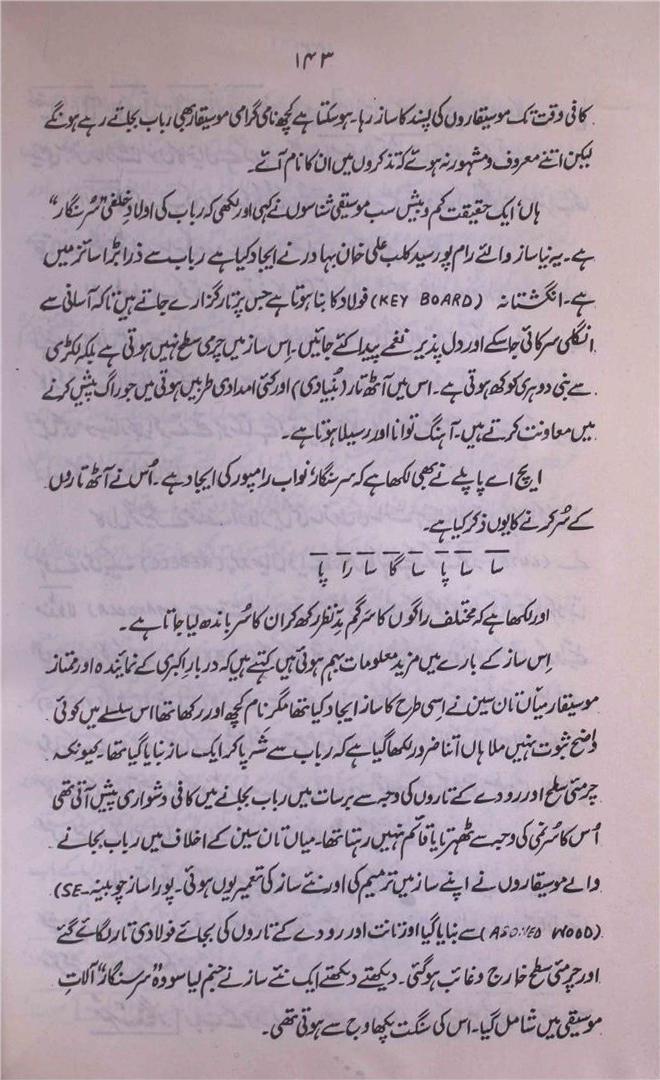 ۱۴۳
کافی وقت تک موسیقاروں کی پسند کا ساز رہا۔ ہوسکتا ہے کچھ نامی گرامی موسیقار بھی رباب بجاتے رہے ہونگے
لیکن اتنے معروف و مشہور نہ ہوتے کہ تذکروں میں ان کا نام آئے۔
ہاں ایک حقیقت کم و بیش سب موسیقی شناسوں نے کہی اور لکھی کہ رباب کی اولادِ خلفی "سُرسنگار"
ہے۔ یہ نیا ساز والئے رام پور سید کلب علی خان بہادر نے ایجاد کیا ہے رباب سے ذرا بڑا سائز میں
ہے۔ انگشتانہ (KEY BOARD) فولاد کا بنا ہوتا ہے جس پر تار گزارے جاتے ہیں تاکہ آسانی سے
انگلی سرکائی جاسکے اور دل پذیر نغمے پیدا کئے جائیں۔ اِس ساز میں چرمی سطح نہیں ہوتی ہے بلکہ لکڑی
سے بنی دوہری کوکھ ہوتی ہے۔ اس میں آٹھ تار (بُنیادی) اور کئی امدادی طربیں ہوتی ہیں جو راگ پیش کرنے
میں معاونت کرتے ہیں۔ آہنگ توانا اور رسیلا ہوتا ہے۔
ایچ اے پاپلے نے بھی لکھا ہے کہ سرسنگار، نواب رامپور کی ایجاد ہے۔ اُس نے آٹھ تاروں
کے سُر کرنے کا یوں ذکر کیا ہے۔
سا سا پا سا گا سا را پا
اور لکھا ہے کہ مختلف راگوں کا سرگم مدِنظر رکھ کر ان کا سُر باندھ لیا جاتا ہے۔
اِس ساز کے بارے میں مزید معلومات بہم ہوئی ہیں۔ کہتے ہیں کہ دربارِ اکبری کے نمائیندہ اور ممتاز
موسیقار میاں تان سین نے اِسی طرح کا ساز ایجاد کیا تھا مگر نام کچھ اور رکھا تھا اس سلسلے میں کوئی
واضح ثبوت نہیں ملا ہاں اتنا ضرور لکھا گیا ہے کہ رباب سے شہ پاکر ایک ساز بنایا گیا تھا۔ کیونکہ
چرمئی سطح اور رودے کے تاروں کی وجہ سے برسات میں رباب بجانے میں کافی دشواری پیش آتی تھی
اُس کا سُر نمی کی وجہ سے ٹھہرتا یا قائم نہیں رہتا تھا۔ میاں تان سین کے اخلاف میں رباب بجانے
والے موسیقاروں نے اپنے ساز میں ترمیم کی اور نئے ساز کی تعمیر یوں ہوئی۔ پورا ساز چوبینہ (SE-
ASONED WOOD) سے بنایا گیا اور تانت اور رودے کے تاروں کی بجائے فولادی تار لگائے گئے
اور چرمئی سطح خارج و غائب ہوگئی۔ دیکھتے دیکھتے ایک نئے ساز نے جنم لیا سو وہ "سُرسنگار" آلاتِ
موسیقی میں شامل گیا۔ اس کی سنگت پکھاوج سے ہوتی تھی۔